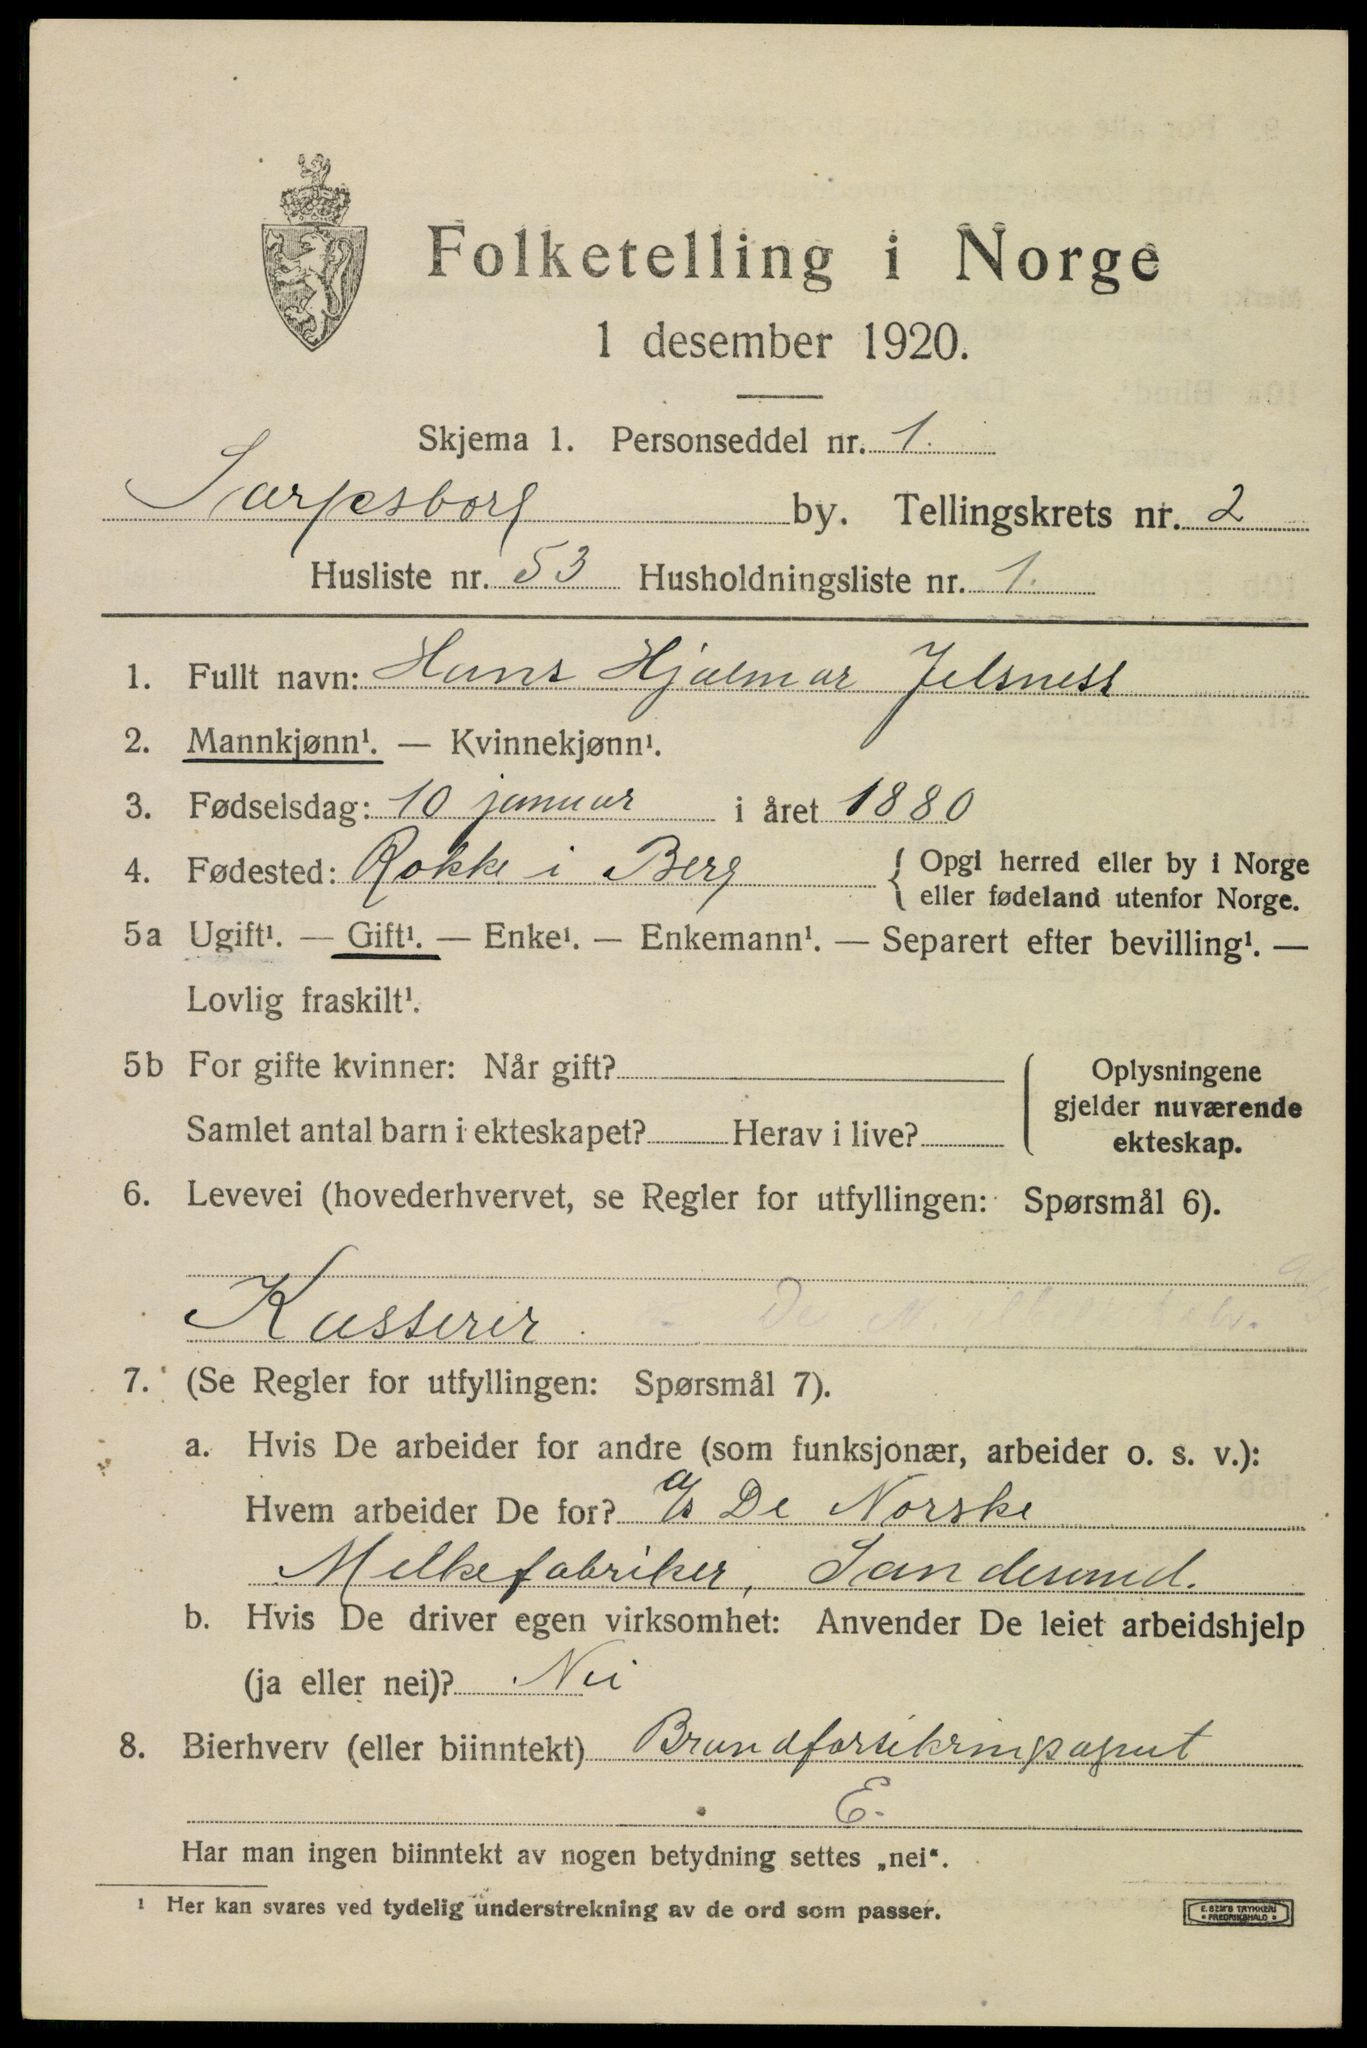 Folketelling i Norge
1 desember 1920.
Skjema 1. Personseddel nr. 1.
Sarpsborg by. Tellingskrets nr. 2
Husliste nr. 53 Husholdningsliste nr. 1.
1. Fullt navn: Hans Hjalmar Jelsness
2. Mannkjønn¹. — Kvinnekjønn¹.
3. Fødselsdag: 10 januar i året 1880
4. Fødested: Rokke i Berg { Opgi herred eller by i Norge
eller fødeland utenfor Norge.
5a Ugift¹. — Gift¹. — Enke¹. — Enkemann¹. — Separert efter bevilling¹. —
Lovlig fraskilt¹.
5b For gifte kvinner: Når gift?
Samlet antal barn i ekteskapet? Herav i live?
Oplysningene
gjelder nuværende
ekteskap.
6. Levevei (hovederhvervet, se Regler for utfyllingen: Spørsmål 6).
Kasserer.
7. (Se Regler for utfyllingen: Spørsmål 7).
a. Hvis De arbeider for andre (som funksjonær, arbeider o. s. v.):
Hvem arbeider De for? a/s De Norske
Melkefabriker, Sandesund.
b. Hvis De driver egen virksomhet: Anvender De leiet arbeidshjelp
(ja eller nei)? Nei
8. Bierhverv (eller biinntekt) Brandforsikringsagent
E.
Har man ingen biinntekt av nogen betydning settes „nei“.
¹ Her kan svares ved tydelig understrekning av de ord som passer.
E. SEM'S TRYKKERI
• FREDRIKSHALD •